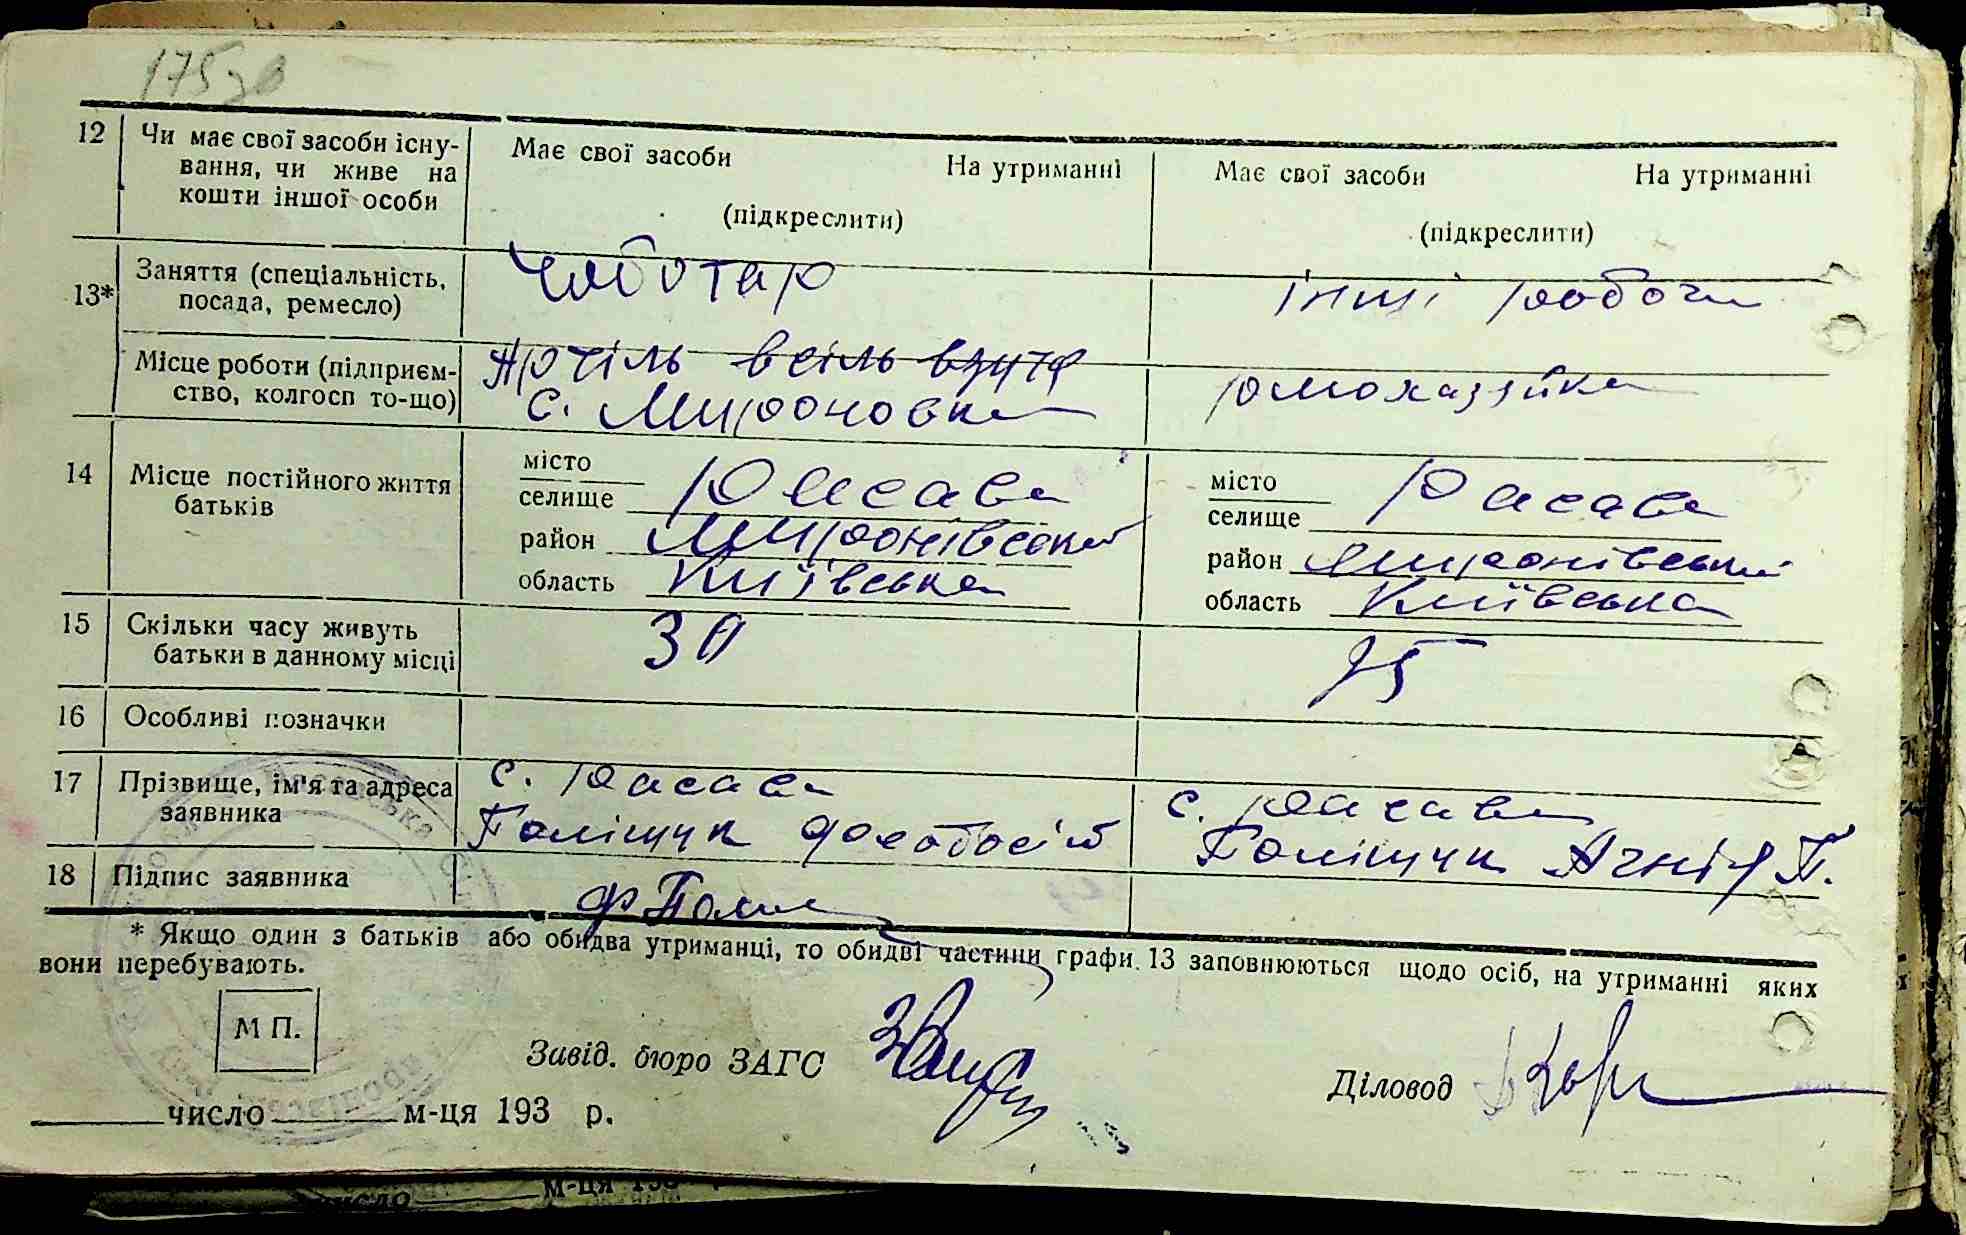 175 зв
12 Чи має свої засоби існу-
вання, чи живе на
кошти іншої особи
Має свої засоби На утриманні
(підкреслити)
Має свої засоби На утриманні
(підкреслити)
13* Заняття (спеціальність,
посада, ремесло)
чоботар
інші роботи
Місце роботи (підприєм-
ство, колгосп то-що)
Артіль
с. Мироновка
домохазяйка
14 Місце постійного життя
батьків
місто
селище Росава
район Миронівський
область Київська
місто
селище Росава
район Миронівський
область Київська
15 Скільки часу живуть
батьки в данному місці
30
25
16 Особливі позначки
17 Прізвище, ім'я та адреса
заявника
с. Росава
Поліщук
с. Росава
Поліщук П.
18 Підпис заявника
* Якщо один з батьків або обидва утриманці, то обидві частини графи 13 заповнюються щодо осіб, на утриманні яких
вони перебувають.
М П.
Завід. бюро ЗАГС
Діловод
число м-ця 193 р.
число м-ця 193